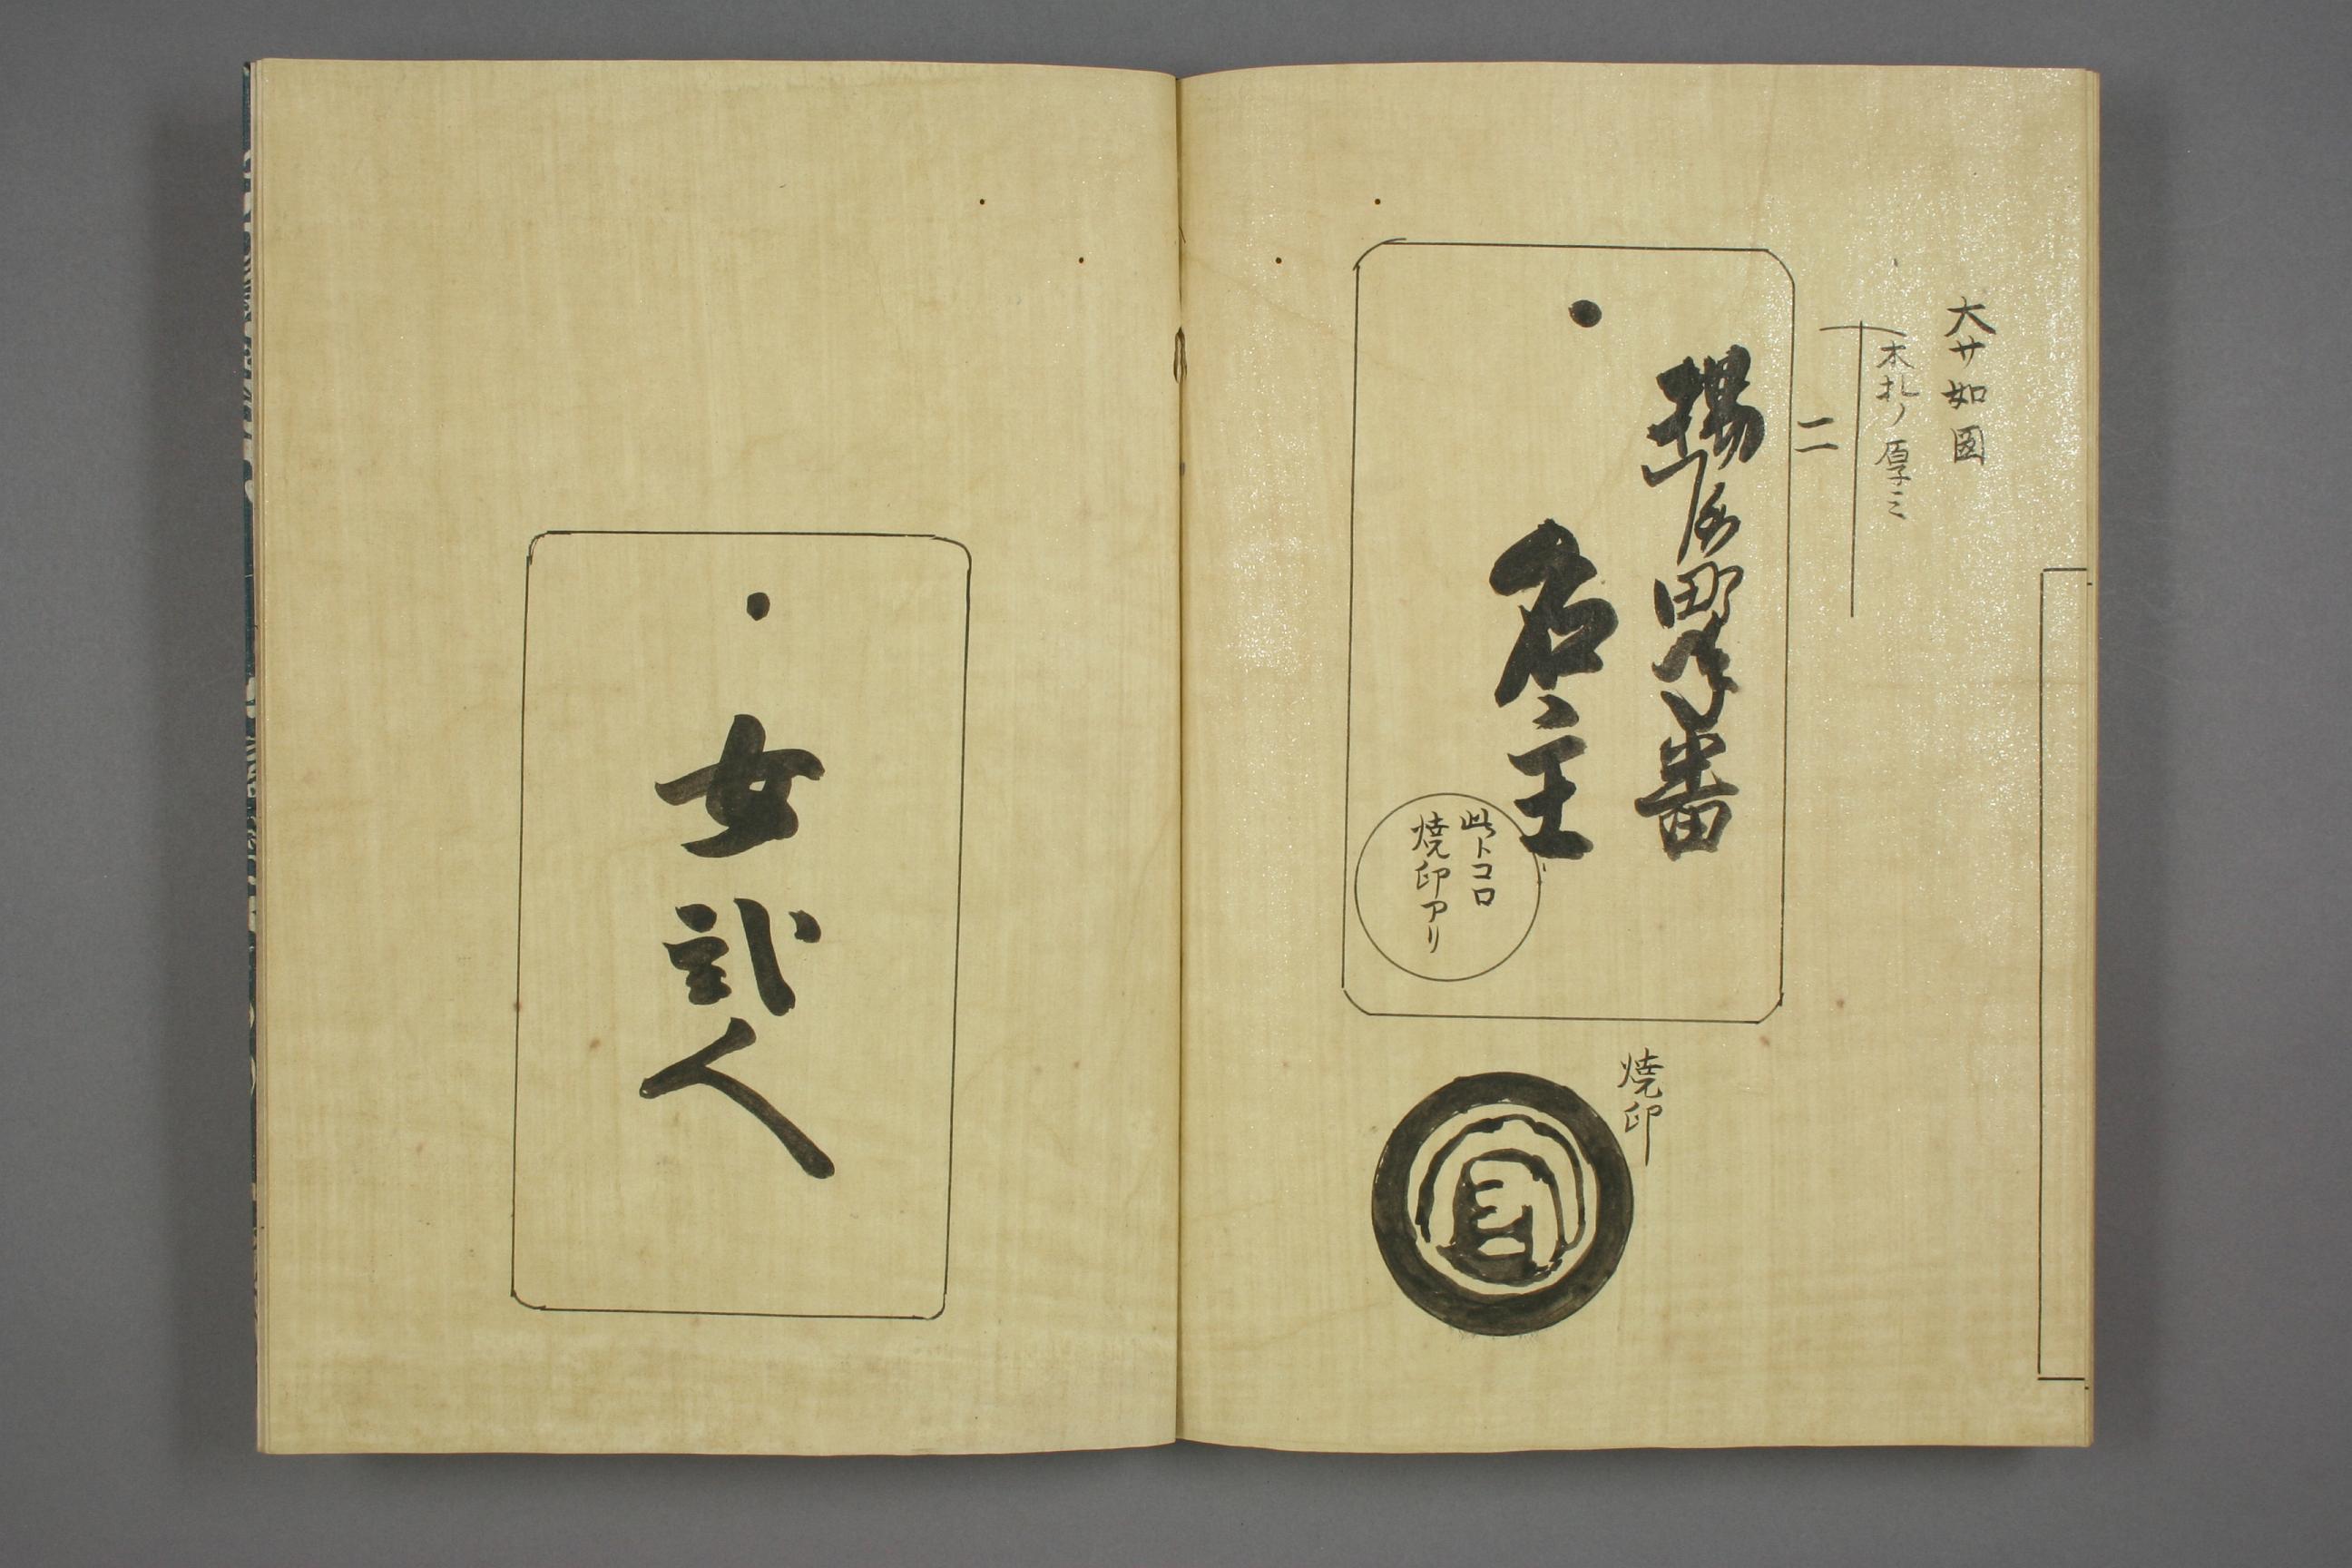 大サ如図
木札ノ厚ミ
二
揚屋町年番
名主
此トコロ
焼印アリ
焼印
女弐人